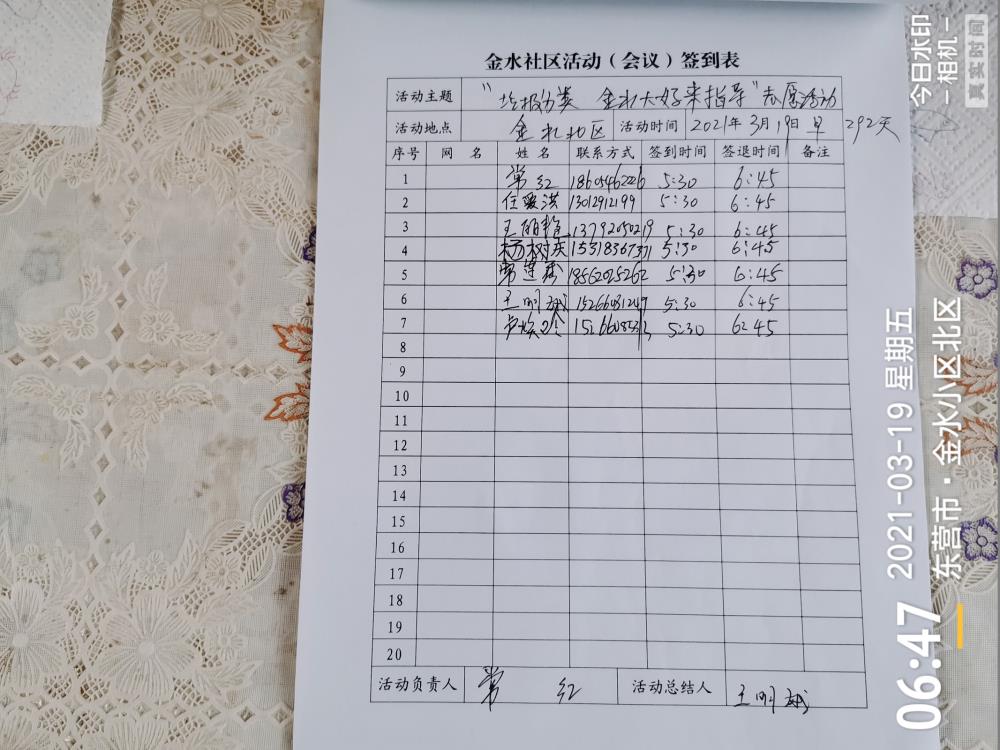 金水社区活动（会议）签到表
活动主题 "垃圾分类 金水大好来指导"志愿活动
活动地点 金水社区 活动时间 2021年3月19日 早 292天
序号 网 名 姓 名 联系方式 签到时间 签退时间 备注
1 常红 18605462226 5:30 6:45
2 任爱洪 13012912199 5:30 6:45
3 王丽艳 13792050219 5:30 6:45
4 杨树庆 5:30 6:45
5 常莲秀 18562025262 5:30 6:45
6 王明斌 15266031249 5:30 6:45
7 5:30 6:45
8
9
10
11
12
13
14
15
16
17
18
19
20
活动负责人 常 红 活动总结人 王明斌
今日水印
－相机－
真实时间
06:47
2021-03-19 星期五
东营市·金水小区北区